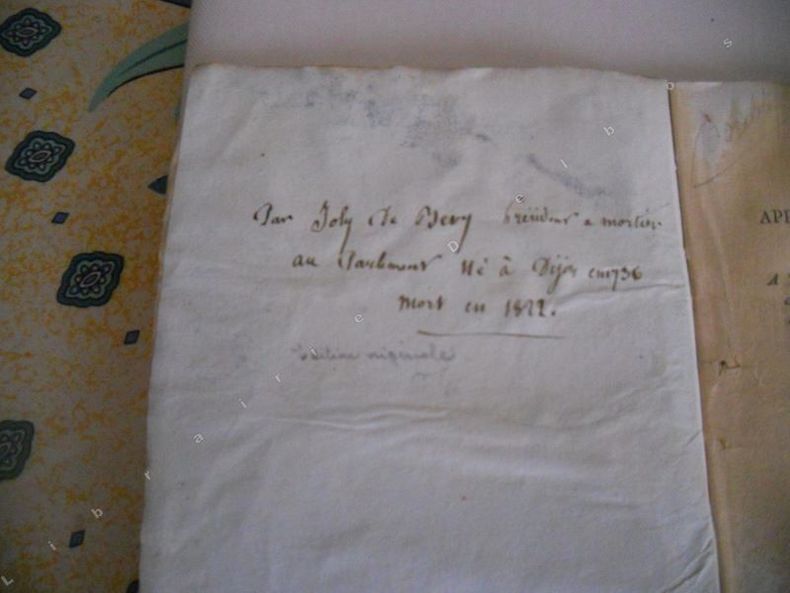 Par Joly de Bevy Président a mortier
au Parlement Né à Dijon en 1736
Mort en 1822.
Edition originale
API
A
Librairie Delbos